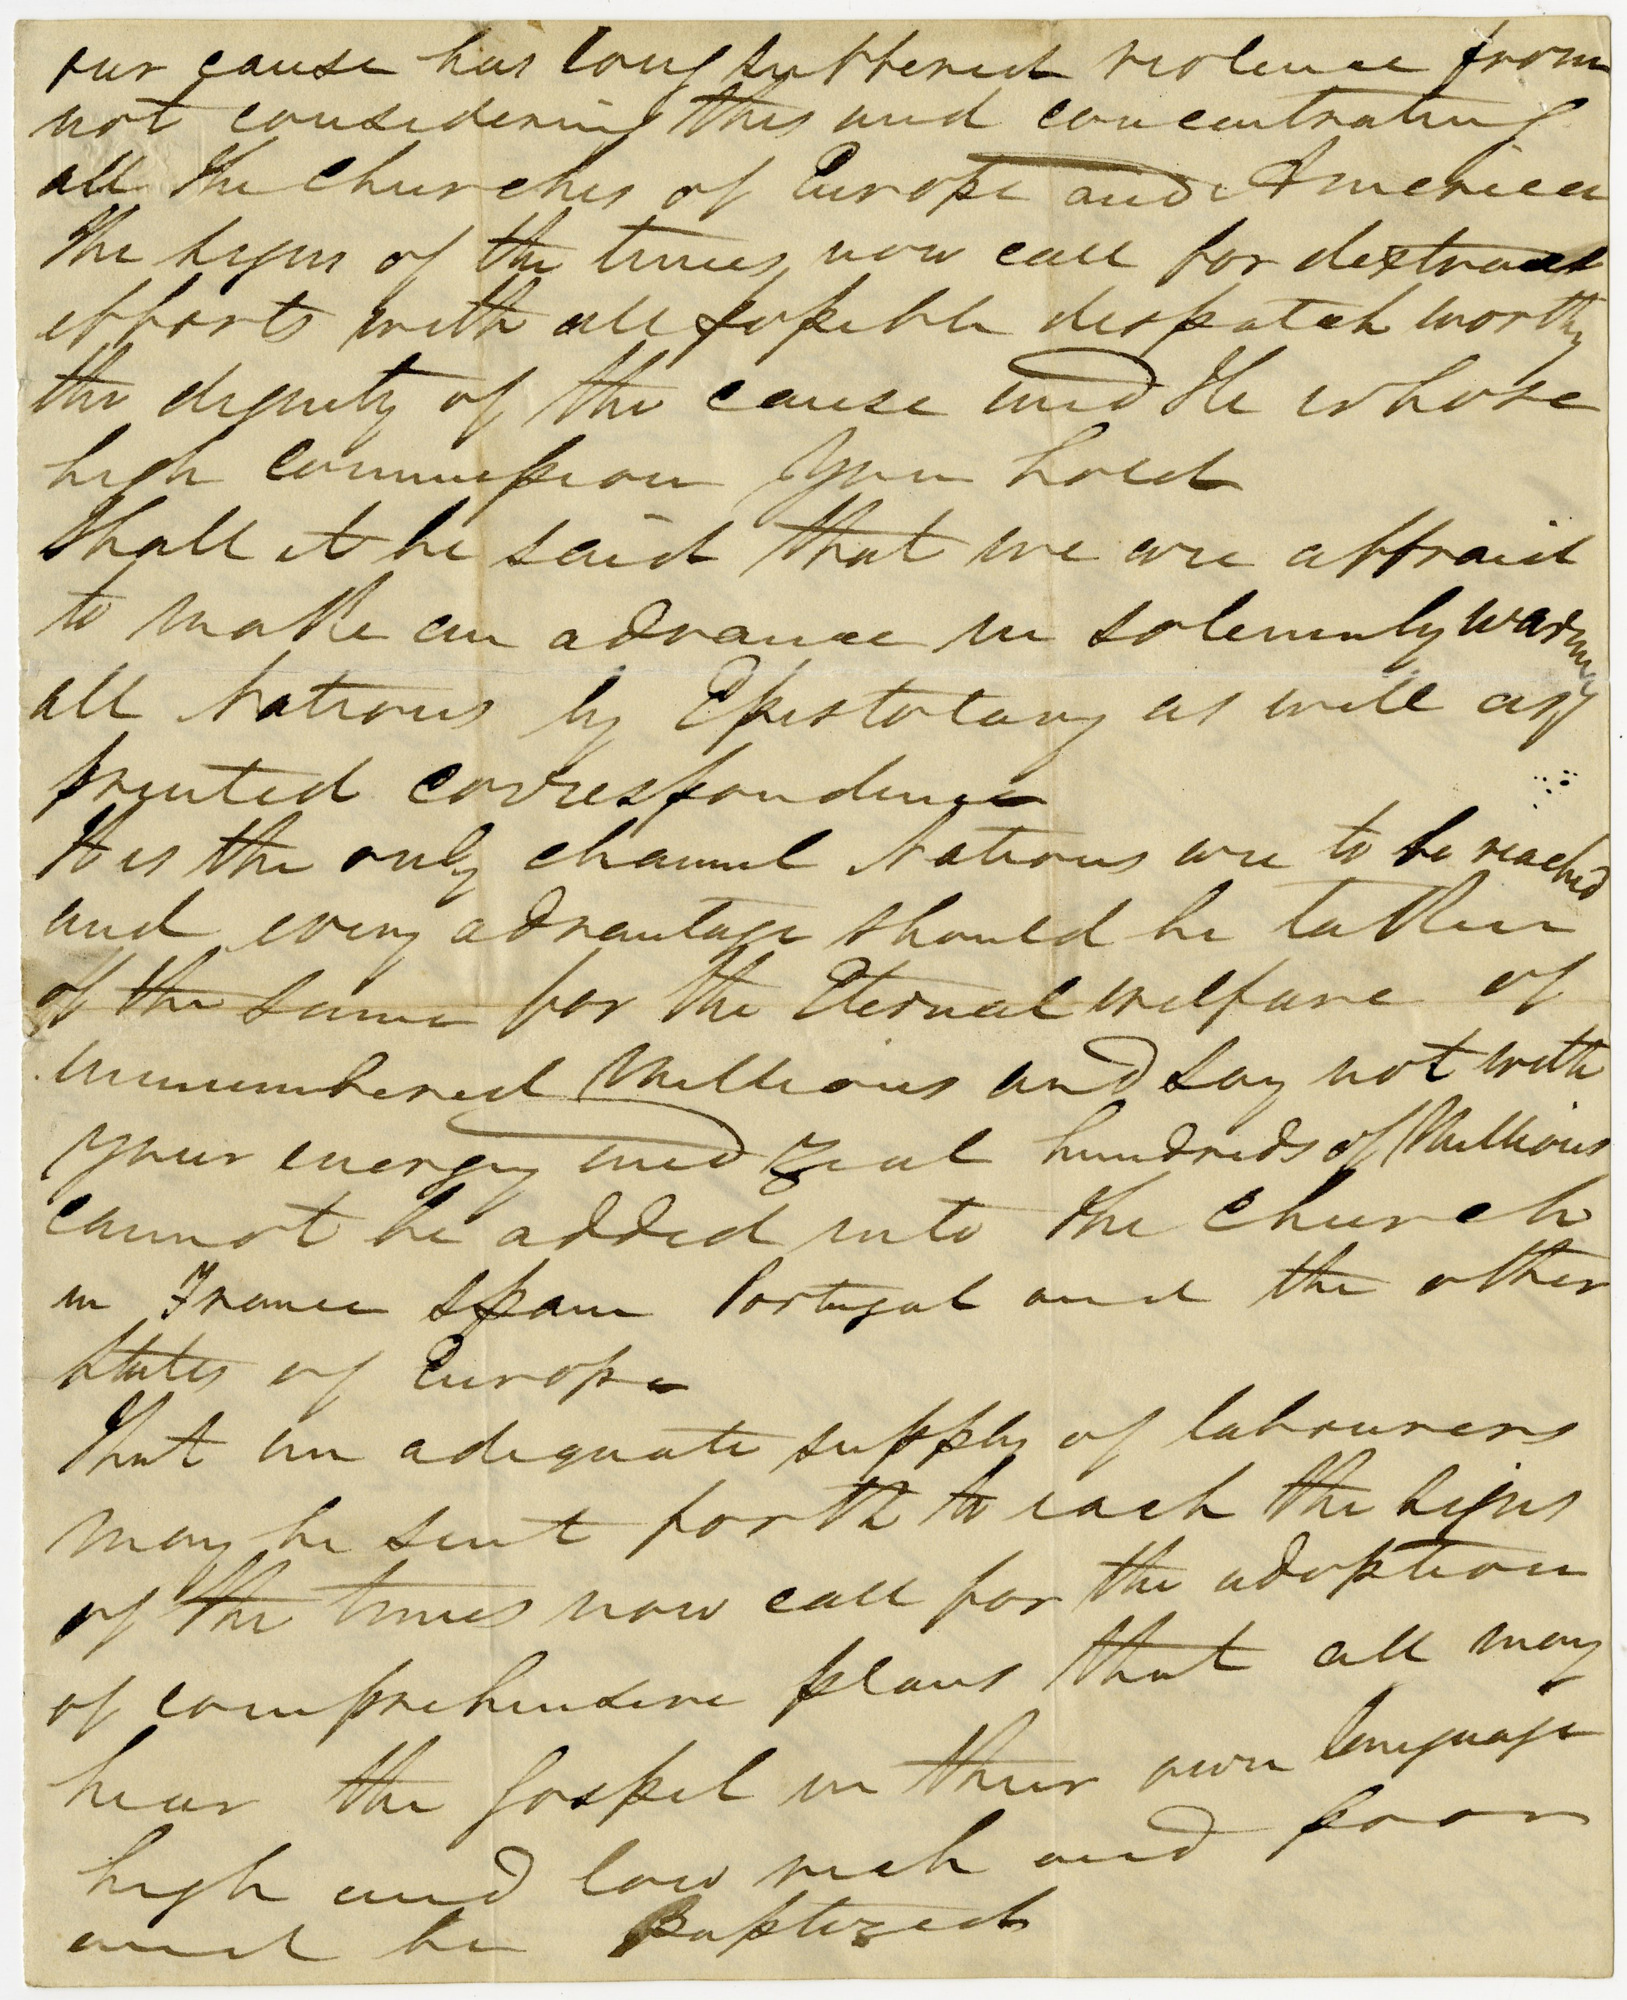 our cause has long suffered violence from
not considering this and concentrating
all the Churches of Europe and America
The signs of the times now call for
efforts with all possible despatch worthy
the dignity of the cause and He whose
high commission you hold
Shall it be said that we are affraid
to make an advance in solemnly warning
all Nations by Epistolary as well as
printed correspondence
It is the only channel Nations are to be reached
and every advantage should be taken
of the same for the Eternal welfare of
unnumbered Millions and say not with
your energy and zeal hundreds of Millions
cannot be added into the Church
in France Spain Portugal and the other
States of Europe
That an adequate supply of labourers
may be sent forth to each the signs
of the times now call for the adoption
of comprehensive plans that all may
hear the Gospel in their own language
high and low rich and poor
and be Baptized